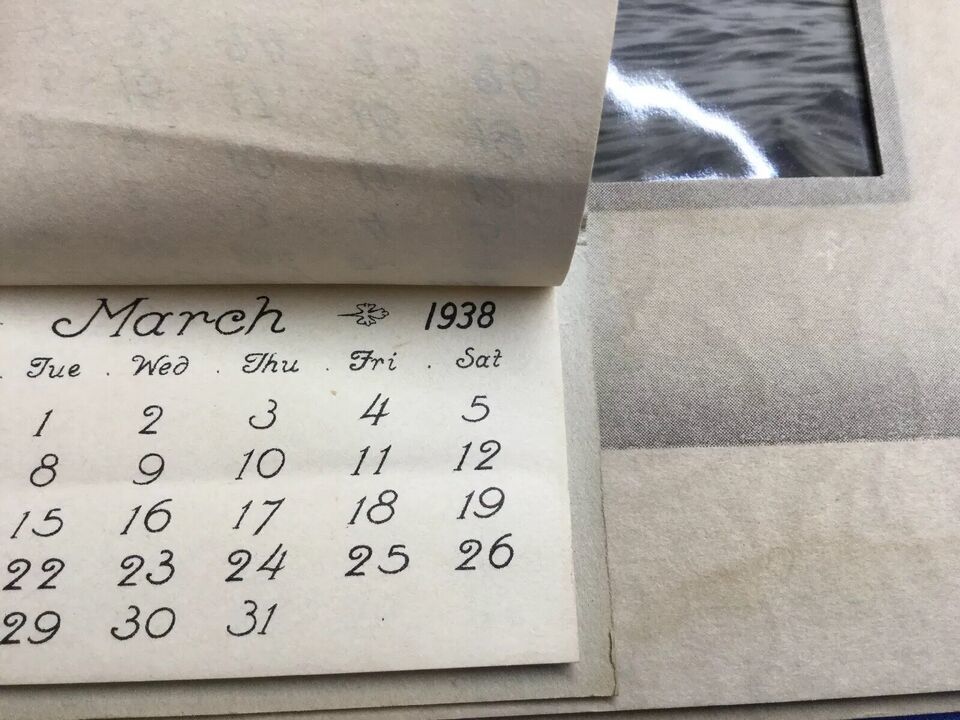 March 1938
. Tue . Wed . Thu . Fri . Sat
1 2 3 4 5
8 9 10 11 12
15 16 17 18 19
22 23 24 25 26
29 30 31